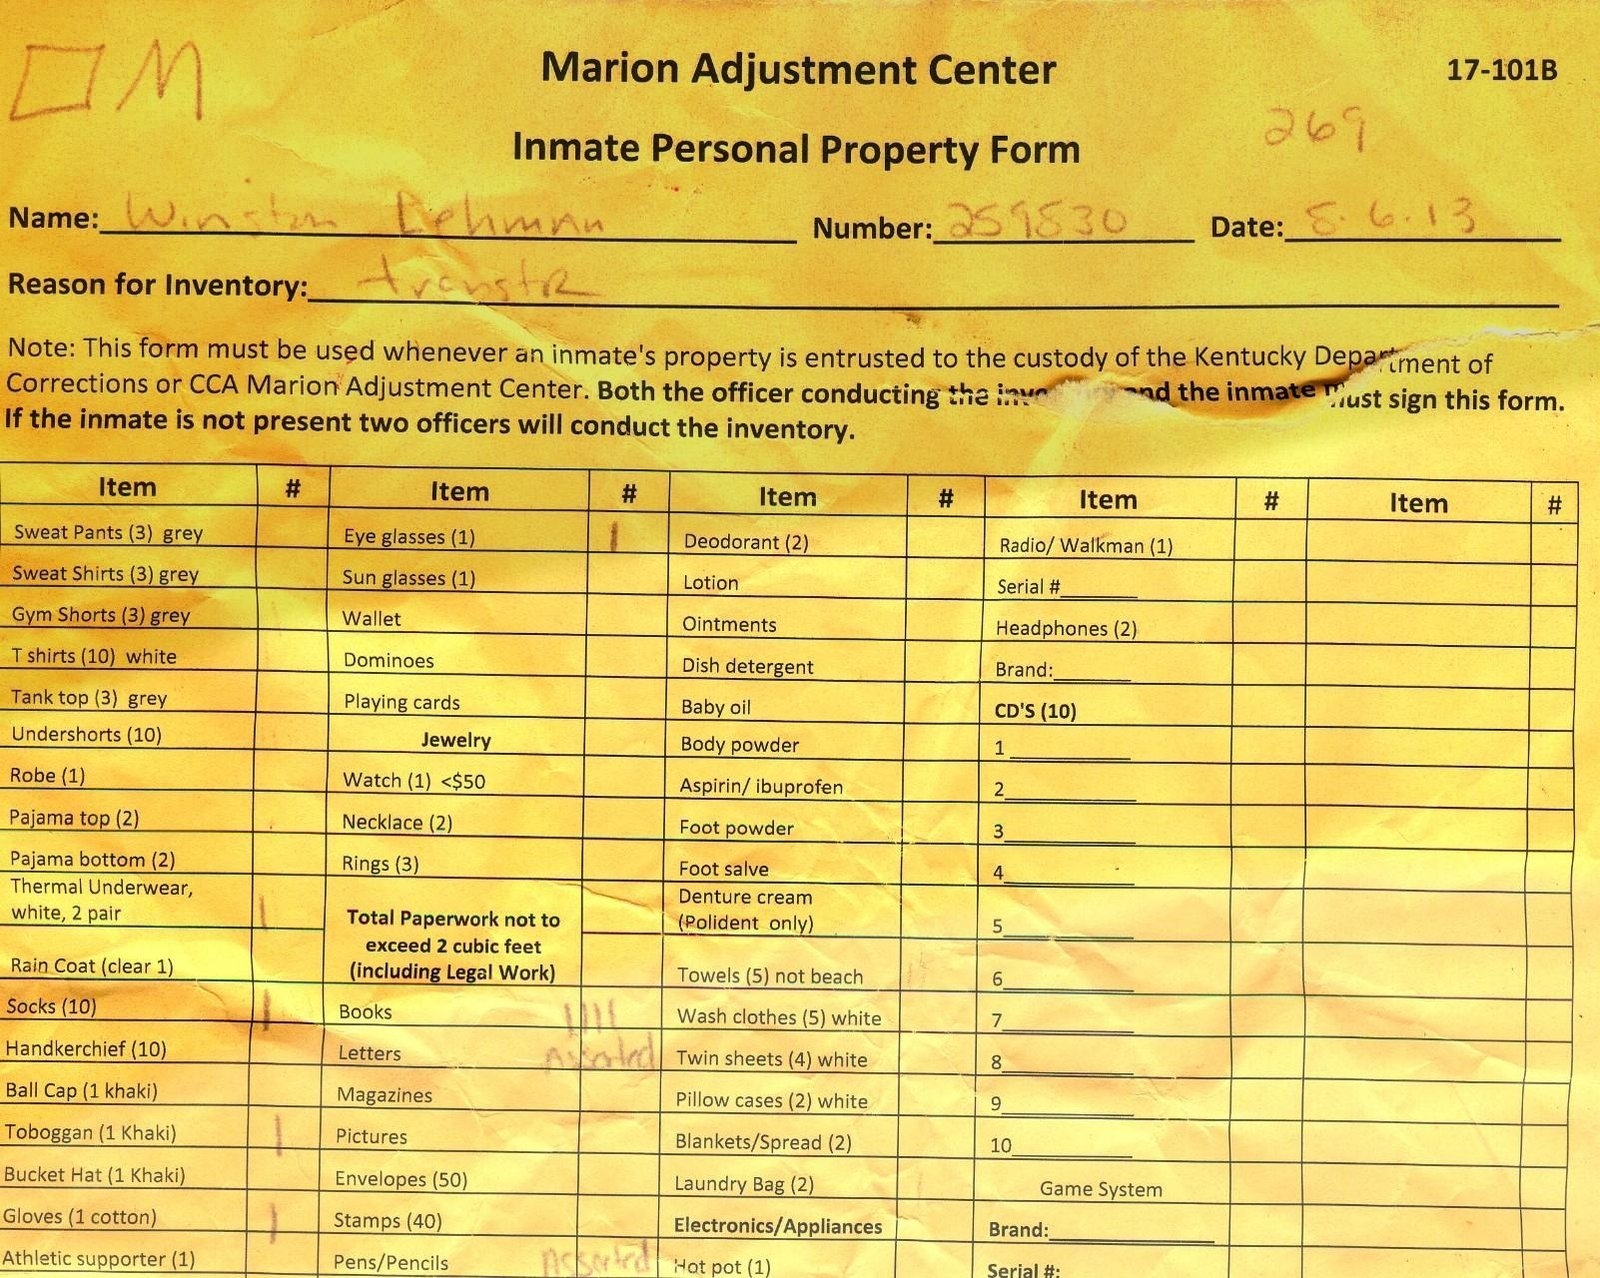 M
Marion Adjustment Center 17-101B
269
Inmate Personal Property Form
Name: Winston Lehman Number: 259830 Date: 8.6.13
Reason for Inventory: transfer
Note: This form must be used whenever an inmate's property is entrusted to the custody of the Kentucky Department of
Corrections or CCA Marion Adjustment Center. Both the officer conducting the and the inmate must sign this form.
If the inmate is not present two officers will conduct the inventory.
Item # Item # Item # Item # Item #
Sweat Pants (3) grey Eye glasses (1) 1 Deodorant (2) Radio/ Walkman (1)
Sweat Shirts (3) grey Sun glasses (1) Lotion Serial #
Gym Shorts (3) grey Wallet Ointments Headphones (2)
T shirts (10) white Dominoes Dish detergent Brand:
Tank top (3) grey Playing cards Baby oil CD'S (10)
Undershorts (10) Jewelry Body powder 1
Robe (1) Watch (1) <$50 Aspirin/ ibuprofen 2
Pajama top (2) Necklace (2) Foot powder 3
Pajama bottom (2) Rings (3) Foot salve 4
Thermal Underwear, Denture cream
white, 2 pair 1 Total Paperwork not to (Polident only) 5
exceed 2 cubic feet
Rain Coat (clear 1) (including Legal Work) Towels (5) not beach 6
Socks (10) 1 Books 1111 Wash clothes (5) white 7
Handkerchief (10) Letters Assorted Twin sheets (4) white 8
Ball Cap (1 khaki) Magazines Pillow cases (2) white 9
Toboggan (1 Khaki) 1 Pictures Blankets/Spread (2) 10
Bucket Hat (1 Khaki) Envelopes (50) Laundry Bag (2) Game System
Gloves (1 cotton) 1 Stamps (40) Electronics/Appliances Brand:
Athletic supporter (1) Pens/Pencils Assorted Hot pot (1) Serial #: